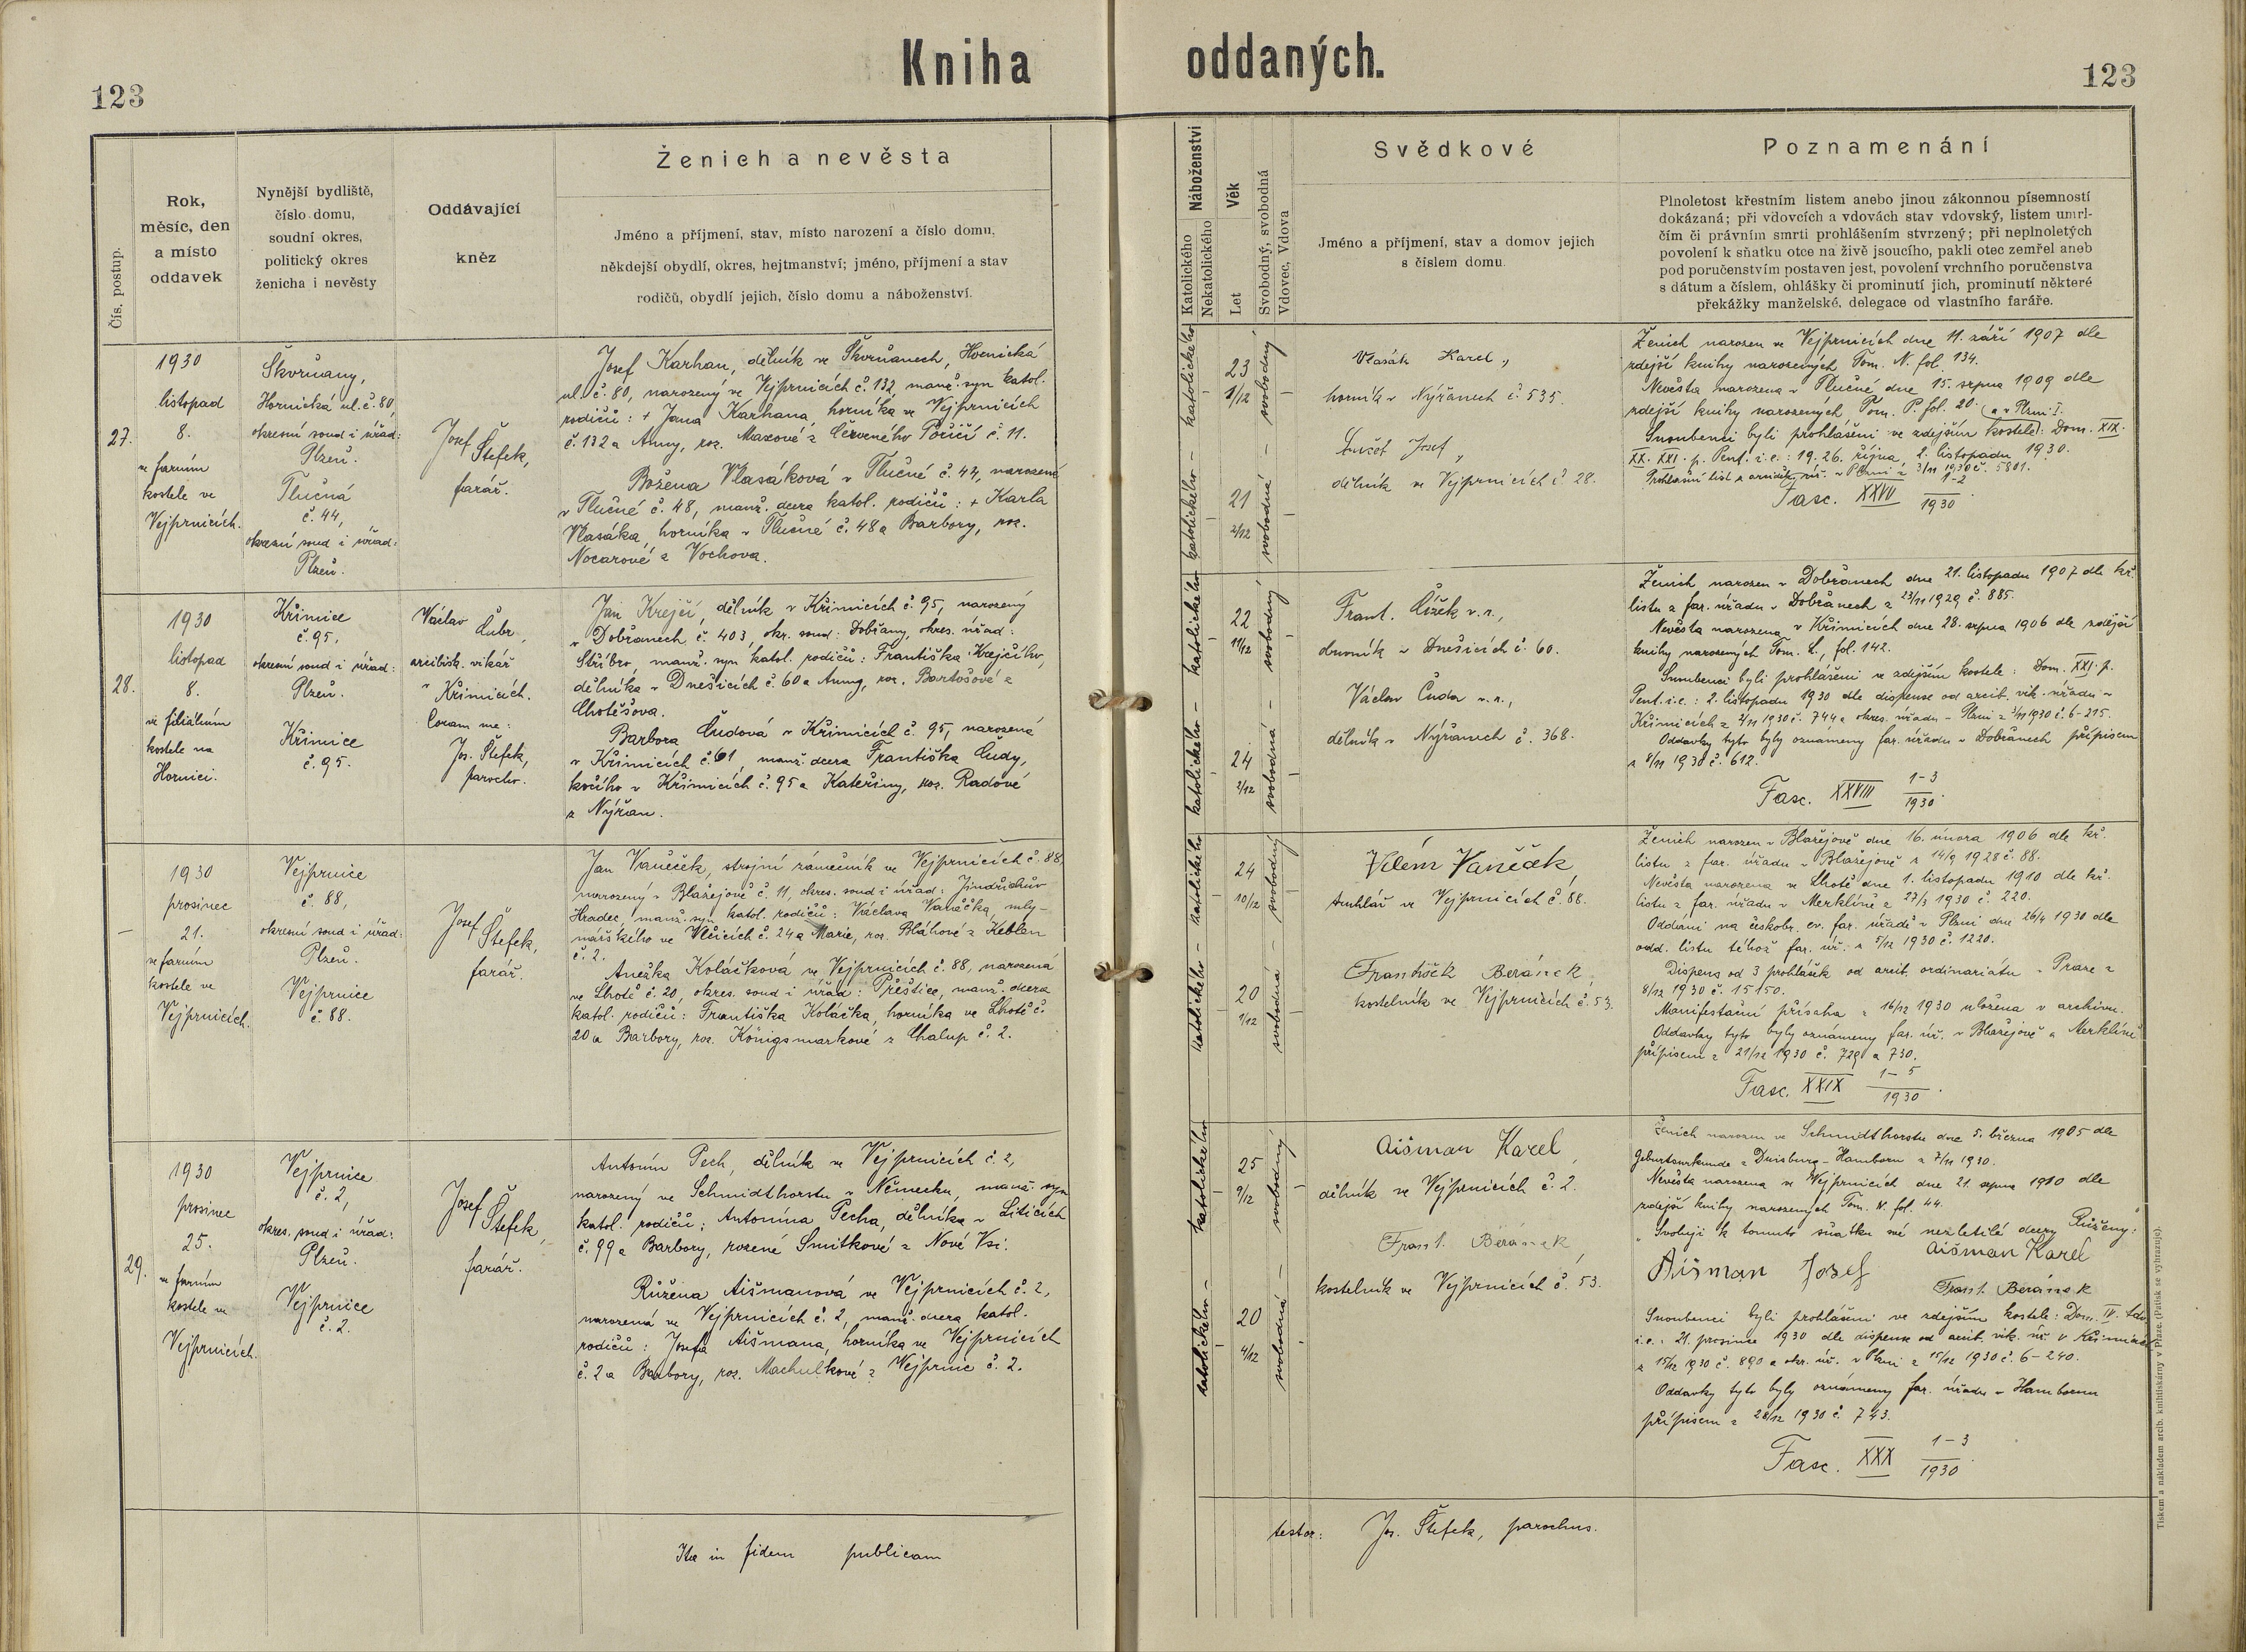 Kniha oddaných.
123
123
Čís. postup.
Rok,
měsíc, den
a místo
oddavek
Nynější bydliště,
číslo domu,
soudní okres,
politický okres
ženicha i nevěsty
Oddávající
kněz
Ženich a nevěsta
Jméno a příjmení, stav, místo narození a číslo domu,
někdejší obydlí, okres, hejtmanství; jméno, příjmení a stav
rodičů, obydlí jejich, číslo domu a náboženství.
Náboženství
Katolického
Nekatolického
Věk
Let
Svobodný, svobodná
Vdovec, Vdova
Svědkové
Jméno a příjmení, stav a domov jejich
s číslem domu.
Poznamenání
Plnoletost křestním listem anebo jinou zákonnou písemností
dokázaná; při vdovcích a vdovách stav vdovský, listem umrl-
čím či právním smrti prohlášením stvrzený; při neplnoletých
povolení k sňatku otce na živě jsoucího, pakli otec zemřel aneb
pod poručenstvím postaven jest, povolení vrchního poručenstva
s dátum a číslem, ohlášky či prominutí jich, prominutí některé
překážky manželské, delegace od vlastního faráře.
27.
1930
listopad
8.
ve farním
kostele ve
Vejprnicích.
Škvrňany,
Hornická ul. č. 80,
okresní soud i úřad:
Plzeň.
Tlučná
č. 44,
okresní soud i úřad:
Plzeň.
Josef
Štefek,
farář.
Josef Karhan, dělník ve Škvrňanech, Hornická
ul. č. 80, narozený ve Vejprnicích č. 132, manž. syn katol.
rodičů: + Jana Karhana, horníka ve Vejprnicích
č. 132 a Anny, roz. Maxové z Červeného Poříčí č. 11.
Božena Vlasáková v Tlučné č. 44, narozená
v Tlučné č. 48, manž. dcera katol. rodičů: + Karla
Vlasáka, horníka v Tlučné č. 48 a Barbory, roz.
Nocarové z Vochova.
katolického – katolického –
23
1/12
21
2/12
svobodný – svobodná –
Vlasák Karel,
horník v Nýřanech č. 535.
Josef,
dělník ve Vejprnicích č. 28.
Ženich narozen ve Vejprnicích dne 11. září 1907 dle
zdejší knihy narozených Tom. N. fol. 134.
Nevěsta narozena v Tlučné dne 15. srpna 1909 dle
zdejší knihy narozených Tom. P. fol. 20. (a v Plzni I.
Snoubenci byli prohlášeni ve zdejším kostele): Dom. XIX.
XX. XXI. p. Pent. i.e.: 19. 26. října, 2. listopadu 1930.
Prohlašní list z úř. v Plzni z 3/11 1930 č. 5801.
Fasc. XXVII 1-2/1930.
28.
1930
listopad
8.
ve filiálním
kostele na
Hornici.
Křimice
č. 95,
okresní soud i úřad:
Plzeň.
Křimice
č. 95.
Václav
Čubr,
arcibisk. vikář
v Křimicích.
Coram me:
Jos. Štefek,
parochus.
Jan Krejčí, dělník v Křimicích č. 95, narozený
v Dobřanech č. 403, okr. soud: Dobřany, okres. úřad:
Stříbro, manž. syn katol. rodičů: Františka Krejčího,
dělníka v Dnešicích č. 60 a Anny, roz. Bartošové z
Chotěšova.
Barbora Čudová v Křimicích č. 95, narozená
v Křimicích č. 61, manž. dcera Františka Čudy,
kočího v Křimicích č. 95 a Kateřiny, roz. Radové
z Nýřan.
katolického – katolického –
22
11/12
24
2/12
svobodný – svobodná –
Frant. Čížek v.r.,
drvník v Dnešicích č. 60.
Václav Čuda v.r.,
dělník v Nýřanech č. 368.
Ženich narozen v Dobřanech dne 21. listopadu 1907 dle kř.
listu z far. úřadu v Dobřanech z 23/11 1929 č. 885.
Nevěsta narozena v Křimicích dne 28. srpna 1906 dle zdejší
knihy narozených Tom. L., fol. 142.
Snoubenci byli prohlášeni ve zdejším kostele: Dom. XXI. p.
Pent. i.e.: 2. listopadu 1930 dle dispense od arcib. vik. úřadu v
Křimicích z 3/11 1930 č. 744 a okres. úřadu v Plzni z 3/11 1930 č. 6-215.
Oddavky tyto byly oznámeny far. úřadu v Dobřanech přípisem
z 8/11 1930 č. 612.
Fasc. XXVIII 1-3/1930.
–
1930
prosinec
21.
ve farním
kostele ve
Vejprnicích.
Vejprnice
č. 88,
okresní soud i úřad:
Plzeň.
Vejprnice
č. 88.
Josef
Štefek,
farář.
Jan Vaněček, strojní zámečník ve Vejprnicích č. 88,
narozený v Blažejově č. 11, okres. soud i úřad: Jindřichův
Hradec, manž. syn katol. rodičů: Václava Vaněčka, mly-
nářského ve Vlčicích č. 24 a Marie, roz. Bláhové z Keblan
č. 2.
Anežka Kolášková ve Vejprnicích č. 88, narozená
ve Lhotě č. 20, okres. soud i úřad: Přeštice, manž. dcera
katol. rodičů: Františka Koláška, horníka ve Lhotě č.
20 a Barbory, roz. Königsmarkové z Chalup č. 2.
katolického – katolického –
24
10/12
20
1/12
svobodný – svobodná –
Vilém Vaněček,
truhlář ve Vejprnicích č. 88.
František Beránek,
kostelník ve Vejprnicích č. 53.
Ženich narozen v Blažejově dne 16. února 1906 dle kř.
listu z far. úřadu v Blažejově z 14/9 1928 č. 88.
Nevěsta narozena ve Lhotě dne 1. listopadu 1910 dle kř.
listu z far. úřadu v Merklíně z 27/3 1930 č. 220.
Oddáni na českobr. ev. far. úřadě v Plzni dne 26/4 1930 dle
odd. listu téhož far. úř. z 5/12 1930 č. 1220.
Dispens od 3 prohlášek od arcib. ordinariátu v Praze z
8/12 1930 č. 15150.
Manifestační přísaha z 16/12 1930 uložena v archivu.
Oddavky tyto byly oznámeny far. úř. v Blažejově a Merklíně
přípisem z 21/12 1930 č. 729 a 730.
Fasc. XXIX 1-5/1930.
29.
1930
prosinec
25.
ve farním
kostele ve
Vejprnicích.
Vejprnice
č. 2,
okres. soud i úřad:
Plzeň.
Vejprnice
č. 2.
Josef
Štefek,
farář.
Antonín Pech, dělník ve Vejprnicích č. 2,
narozený ve Schmidthorstu v Německu, manž. syn
katol. rodičů: Antonína Pecha, dělníka v Liticích
č. 99 a Barbory, rozené Smitkové z Nové Vsi.
Růžena Aišmanová ve Vejprnicích č. 2,
narozená ve Vejprnicích č. 2, manž. dcera katol.
rodičů: Josefa Aišmana, horníka ve Vejprnicích
č. 2 a Barbory, roz. Machulkové z Vejprnic č. 2.
katolického – katolického –
25
9/12
20
4/12
svobodný – svobodná –
Aišman Karel,
dělník ve Vejprnicích č. 2.
Frant. Beránek,
kostelník ve Vejprnicích č. 53.
Ženich narozen ve Schmidthorstu dne 5. března 1905 dle
Geburtsurkunde z Duisburg-Hamborn z 7/11 1930.
Nevěsta narozena ve Vejprnicích dne 21. srpna 1910 dle
zdejší knihy narozených Tom. fol. 44.
"Svoluji k tomuto sňatku mé nezletilé dcery Růženy:"
Aišman Josef
Aišman Karel
Frant. Beránek
Snoubenci byli prohlášeni ve zdejším kostele: Dom. IV. Adv.
i.e.: 21. prosince 1930 dle dispense od arcib. vik. úř. v Křimicích
z 15/12 1930 č. 890 a okr. úř. v Plzni z 15/12 1930 č. 6-240.
Oddavky tyto byly oznámeny far. úřadu v Hambornu
přípisem z 28/12 1930 č. 743.
Fasc. XXX 1-3/1930
Ita in fidem publicam
testor: Jos. Štefek, parochus.
Tiskem a nákladem arcib. knihtiskárny v Praze. (Patisk se vyhrazuje).